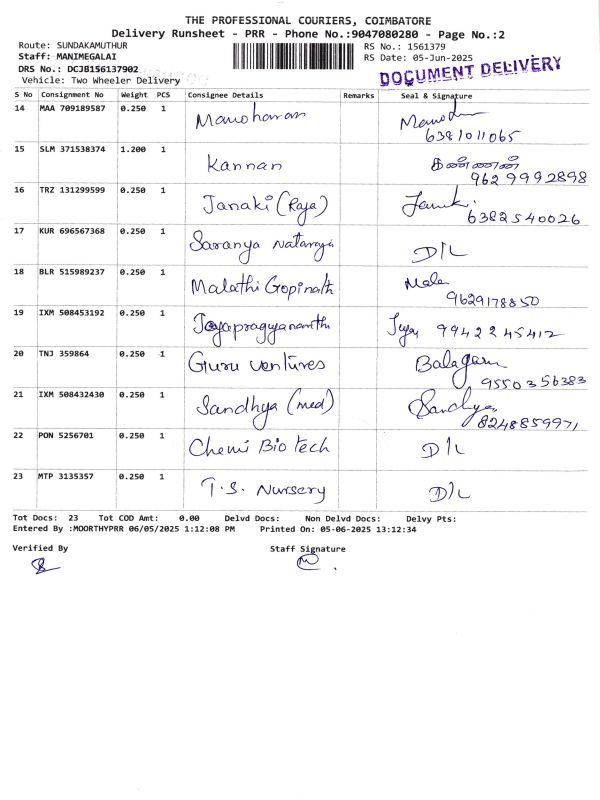 THE PROFESSIONAL COURIERS, COIMBATORE
Delivery Runsheet - PRR - Phone No.:9047080280 - Page No.:2
Route: SUNDAKAMUTHUR RS No.: 1561379
Staff: MANIMEGALAI RS Date: 05-Jun-2025
DRS No.: DCJB156137902
Vehicle: Two Wheeler Delivery
DOCUMENT DELIVERY
S No Consignment No Weight PCS Consignee Details Remarks Seal & Signature
14 MAA 709189587 0.250 1 Manoharan
6381011065
15 SLM 371538374 1.200 1 Kannan கண்ணன்
9629992898
16 TRZ 131299599 0.250 1 Janaki (Raja)
6382540026
17 KUR 696567368 0.250 1 Saranya D/L
18 BLR 515989237 0.250 1 Malathi Gopinath Mala
9629178850
19 IXM 508453192 0.250 1 9942245412
20 TNJ 359864 0.250 1 Guru ventures
9550356383
21 IXM 508432430 0.250 1 Sandhya (med) Sandhya
8248859971
22 PON 5256701 0.250 1 Chemi Bio tech D/L
23 MTP 3135357 0.250 1 T.S. Nursery D/L
Tot Docs: 23 Tot COD Amt: 0.00 Delvd Docs: Non Delvd Docs: Delvy Pts:
Entered By :MOORTHYPRR 06/05/2025 1:12:08 PM Printed On: 05-06-2025 13:12:34
Verified By Staff Signature